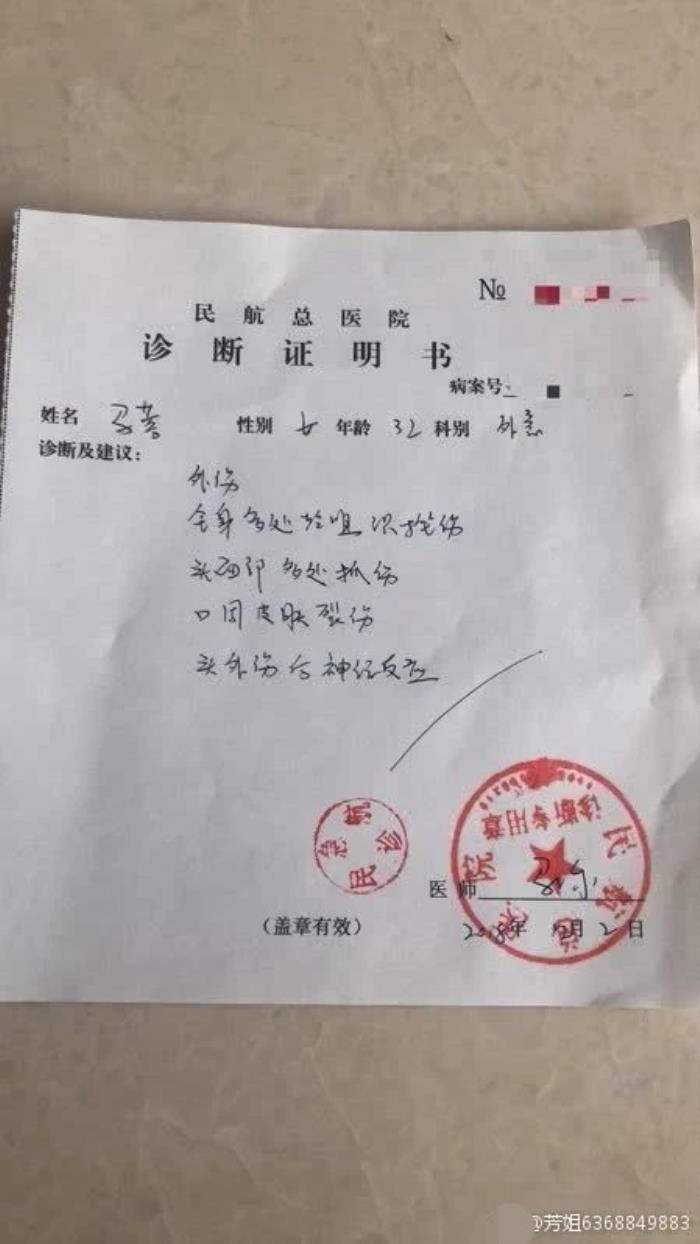 №
民航总医院
诊断证明书
病案号:
姓名 性别 女 年龄 32 科别 外急
诊断及建议:
外伤
全身多处 挫伤
头面部多处抓伤
口周皮肤裂伤
头外伤后神经反应
民航总医院
诊断专用章
民航
急诊
医师
(盖章有效)
2018年 月 2日
@芳姐6368849883